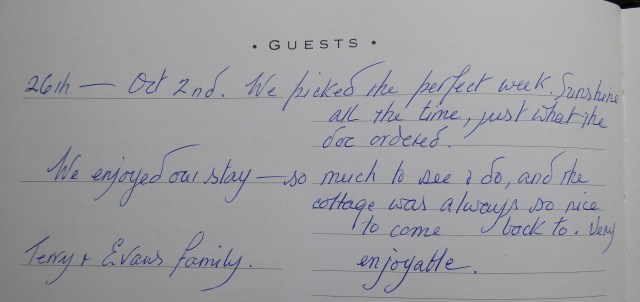 • GUESTS •
26th — Oct 2nd. We picked the perfect week. Sunshine
all the time, just what the
doc ordered.
We enjoyed our stay — so much to see & do, and the
cottage was always so nice
to come back to. Very
Terry + Evans family. enjoyable.